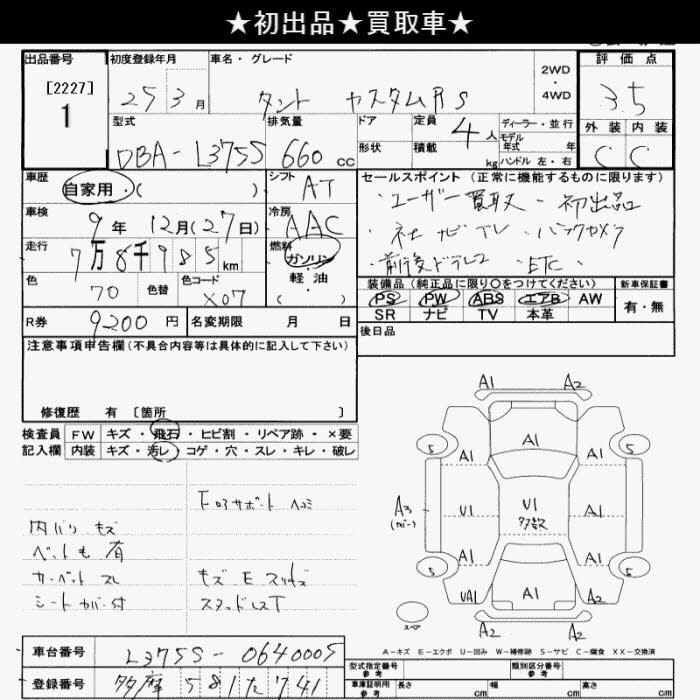 ★初出品★買取車★
出品番号
[2227]
1
初度登録年月
25 3月
車名・グレード
タント カスタムRS
2WD
・
4WD
評価点
3.5
型式
DBA-L375S
排気量
660 cc
ドア
形状
定員
4人
積載
kg
ディーラー・並行
モデル
年式 年
ハンドル 左・右
外装 内装
C C
車歴
自家用・( )
シフト
AT
車検
9年 12月(27日)
冷房
AAC
走行
7万8千985km
燃料
ガソリン
軽・油
( )
色
70
色替
色コード
X07
R券
9200円
名変期限 月 日
セールスポイント(正常に機能するものに限ります)
・ユーザー買取 ・初出品
・社ナビTV ・バックカメラ
・前後ドラレコ ・ETC
装備品(純正品に限り○をつけてください)
PS PW ABS エアB AW
SR ナビ TV 本革
新車保証書
有・無
後日品
注意事項申告欄(不具合内容等は具体的に記入して下さい)
修復歴 有 〔箇所 〕
検査員
記入欄
FW キズ・飛石・ヒビ割・リペア跡・×要
内装 キズ・汚レ・コゲ・穴・スレ・キレ・破レ
Fロアサポート ヘコミ
内バリ キズ
ペット毛 有
カーペット スレ
シートカバー付
スタッドレスT
A1 A2
A1
5 5
A1 A1
A3
(カバー)
U1 U1 A1
多数
A1 A1
5 5
UA1 A1 A2
スペア
A2 A2
A-キズ E-エクボ U-凹み W-補修跡 S-サビ C-腐食 XX-交換済
車台番号
L375S-0640005
登録番号
多摩 581 た 741
型式指定番号
参考
類別区分番号
参考
車庫証明用
参考
長さ cm
幅 cm
高さ cm